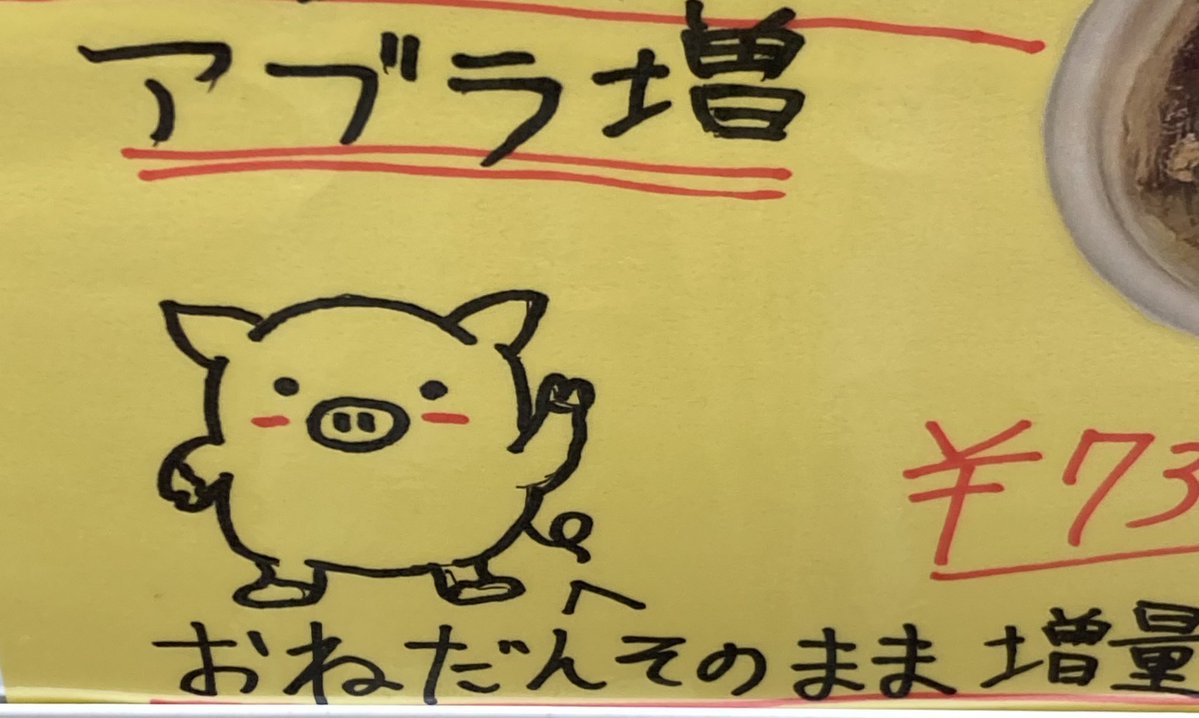 アブラ増
¥73
おねだんそのまま増量